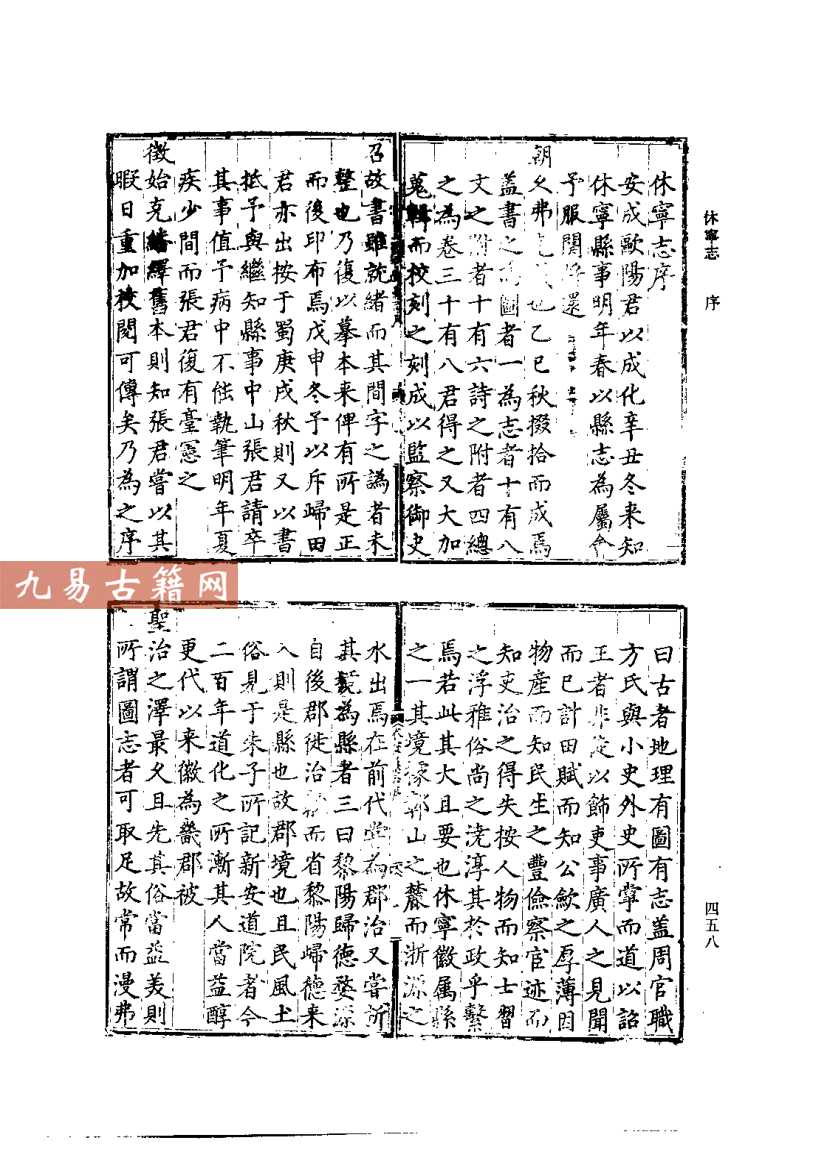 休寧志 序
休寧志序
安成歐陽君以成化辛丑冬来知
休寧縣事明年春以縣志為屬今
予服闋將還
朝久弗克也乙巳秋掇拾而成焉
蓋書之為圖者一為志者十有八
文之附者十有六詩之附者四總
之為卷三十有八君得之又大加
蒐輯而校刻之刻成以監察御史
召故書雖就緒而其間字之譌者未
整也乃復以摹本来俾有所是正
而後印布焉戊申冬予以斥歸田
君亦出按于蜀庚戌秋則又以書
抵予與繼知縣事中山張君請卒
其事值予病中不能執筆明年夏
疾少間而張君復有臺憲之
徵始克繙繹舊本則知張君嘗以其
暇日重加校閱可傳矣乃為之序
曰古者地理有圖有志蓋周官職
方氏與小史外史所掌而道以詔
王者非足以飾吏事廣人之見聞
而已計田賦而知公歛之厚薄因
物產而知民生之豐儉察官迹而
知吏治之得失按人物而知士習
之浮雅俗尚之澆淳其於政乎繫
焉若此其大且要也休寧徽属縣
之一其境據鄣山之麓而浙源之
水出焉在前代嘗為郡治又嘗析
其境為縣者三曰黎陽歸德婺源
自後郡徙治而省黎陽歸德来
入則是縣也故郡境也且民風土
俗見于朱子所記新安道院者今
二百年道化之所漸其人當益醇
更代以来徽為畿郡被
聖治之澤最久且先其俗當益美則
所謂圖志者可取足故常而漫弗
四五八
九易古籍网